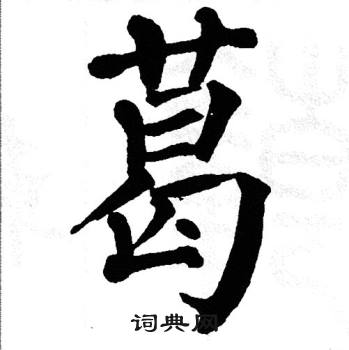 葛
词典网